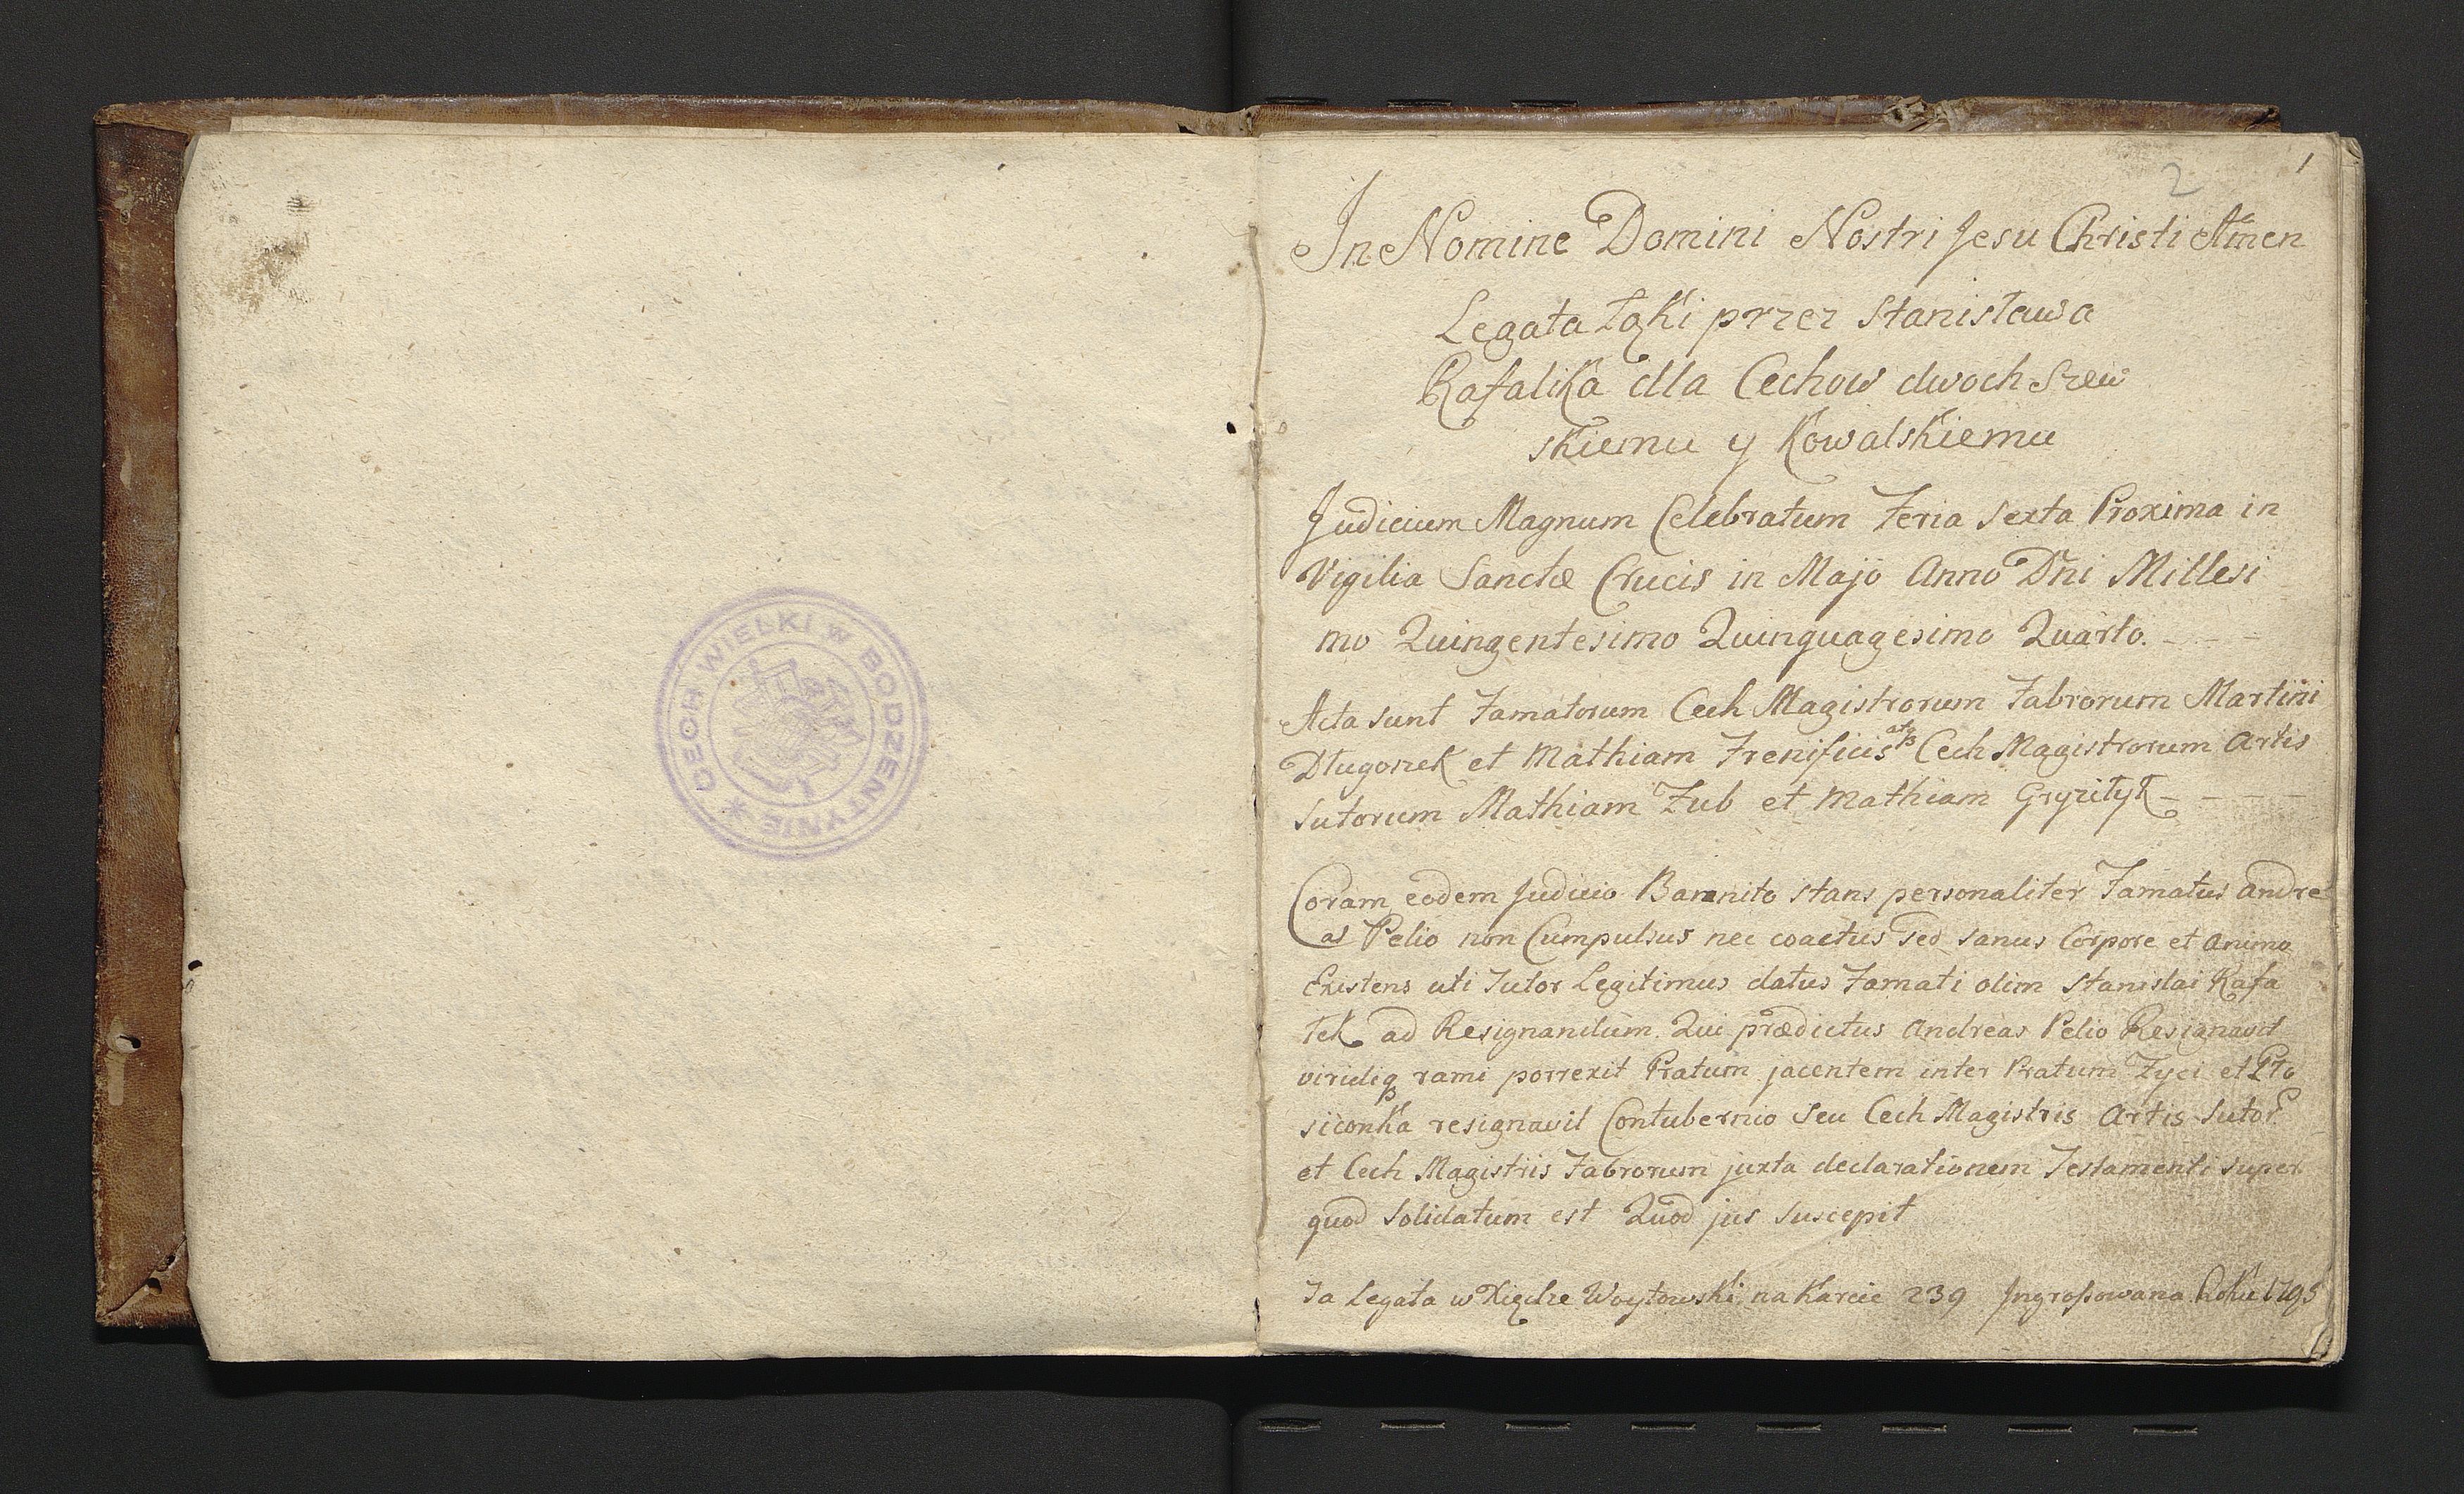 CECH WIELKI W BODZENTYNIE *
2
1
In Nomine Domini Nostri Jesu Christi Amen
Legata Łąki przez Stanisława
Rafalika dla Cechow dwoch Szew
skiemu y Kowalskiemu
Judicium Magnum Celebratum Feria Sexta Proxima in
Vigilia Sanctæ Crucis in Majo Anno Dni Millesi
mo Quingentesimo Quinquagesimo Quarto. - - -
Acta sunt Famatorum Cech Magistrorum Fabrorum Martini
Długoszek et Mathiam Frenificis atq Cech Magistrorum Artis
Sutorum Mathiam Zub et Mathiam - - - -
Coram eodem Judicio Bannito stans personaliter Famatus Andre
as Pelio non Cumpulsus nec coactus Sed sanus Corpore et animo
Existens uti Tutor Legitimus datus Famati olim Stanislai Rafa
łek ad Resignandum. Qui prædictus Andreas Pelio Resignavit
viridiq rami porrexit Pratum jacentem inter Pratum Zyci et Pto
siconka resignavit Contubernio Seu Cech Magistris Artis Sutor
et Cech Magistris Fabrorum juxta declarationem Testamenti super
quod Solidatum est Quod jus suscepit
Ta Legata w Xiędze Woytowski na Karcie 239 Ingrossowana Roku 1795